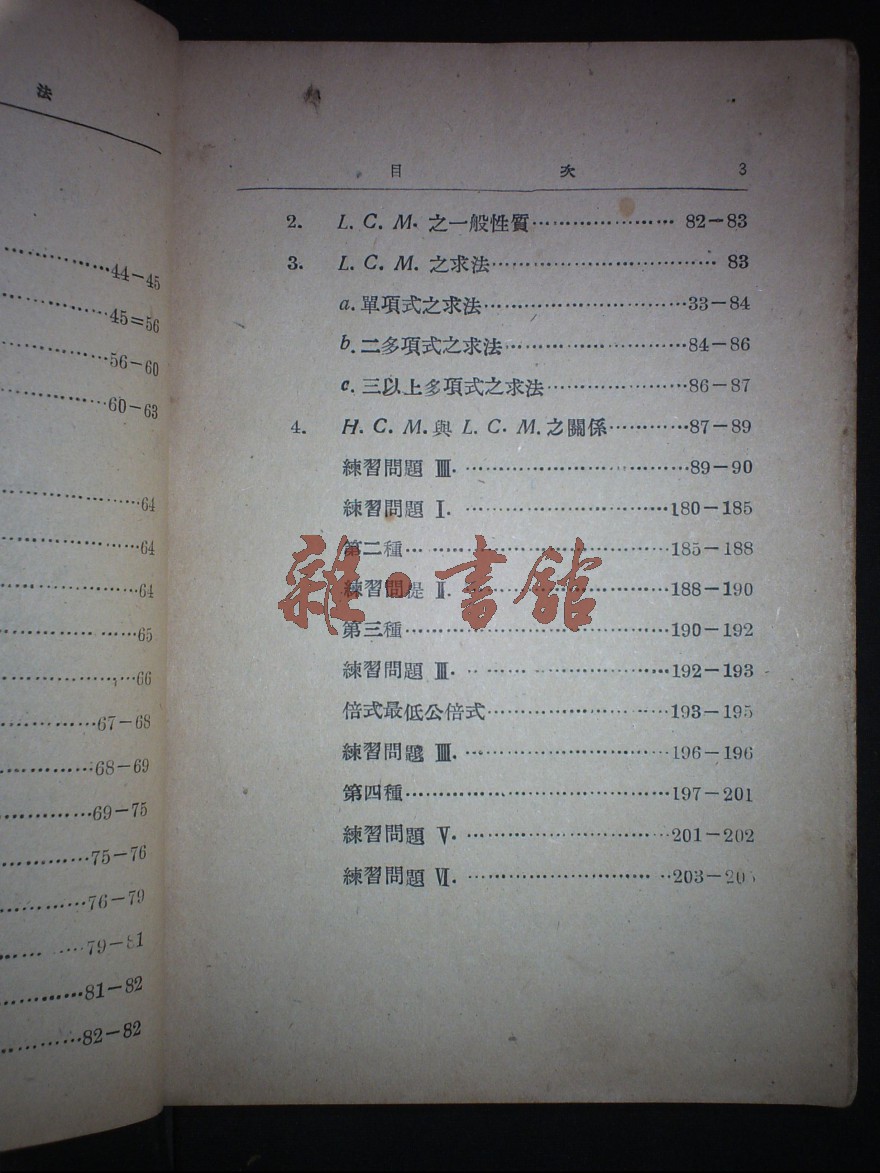 法
44－45
45＝56
56－60
60－63
64
64
64
65
66
67－68
68－69
69－75
75－76
76－79
79－81
81－82
82－82
目 次 3
2. L. C. M. 之一般性質…………………… 82－83
3. L. C. M. 之求法…………………………… 83
a. 單項式之求法……………………………33－84
b. 二多項式之求法…………………………84－86
c. 三以上多項式之求法……………………86－87
4. H. C. M. 與 L. C. M. 之關係…………87－89
練習問題 Ⅲ. ………………………………89－90
練習問題 Ⅰ. ……………………………180－185
第二種……………………………………185－188
練習問提 Ⅱ. ……………………………188－190
第三種……………………………………190－192
練習問題 Ⅲ. ……………………………192－193
倍式最低公倍式…………………………193－195
練習問題 Ⅲ. ……………………………196－196
第四種……………………………………197－201
練習問題 Ⅴ. ……………………………201－202
練習問題 Ⅵ. ……………………………203－20
雜·書館